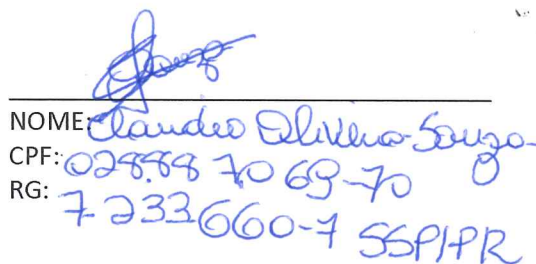 Souza
NOME: Claudio Oliveira Souza
CPF: 028887069-70
RG: 7233660-7 SSP/PR